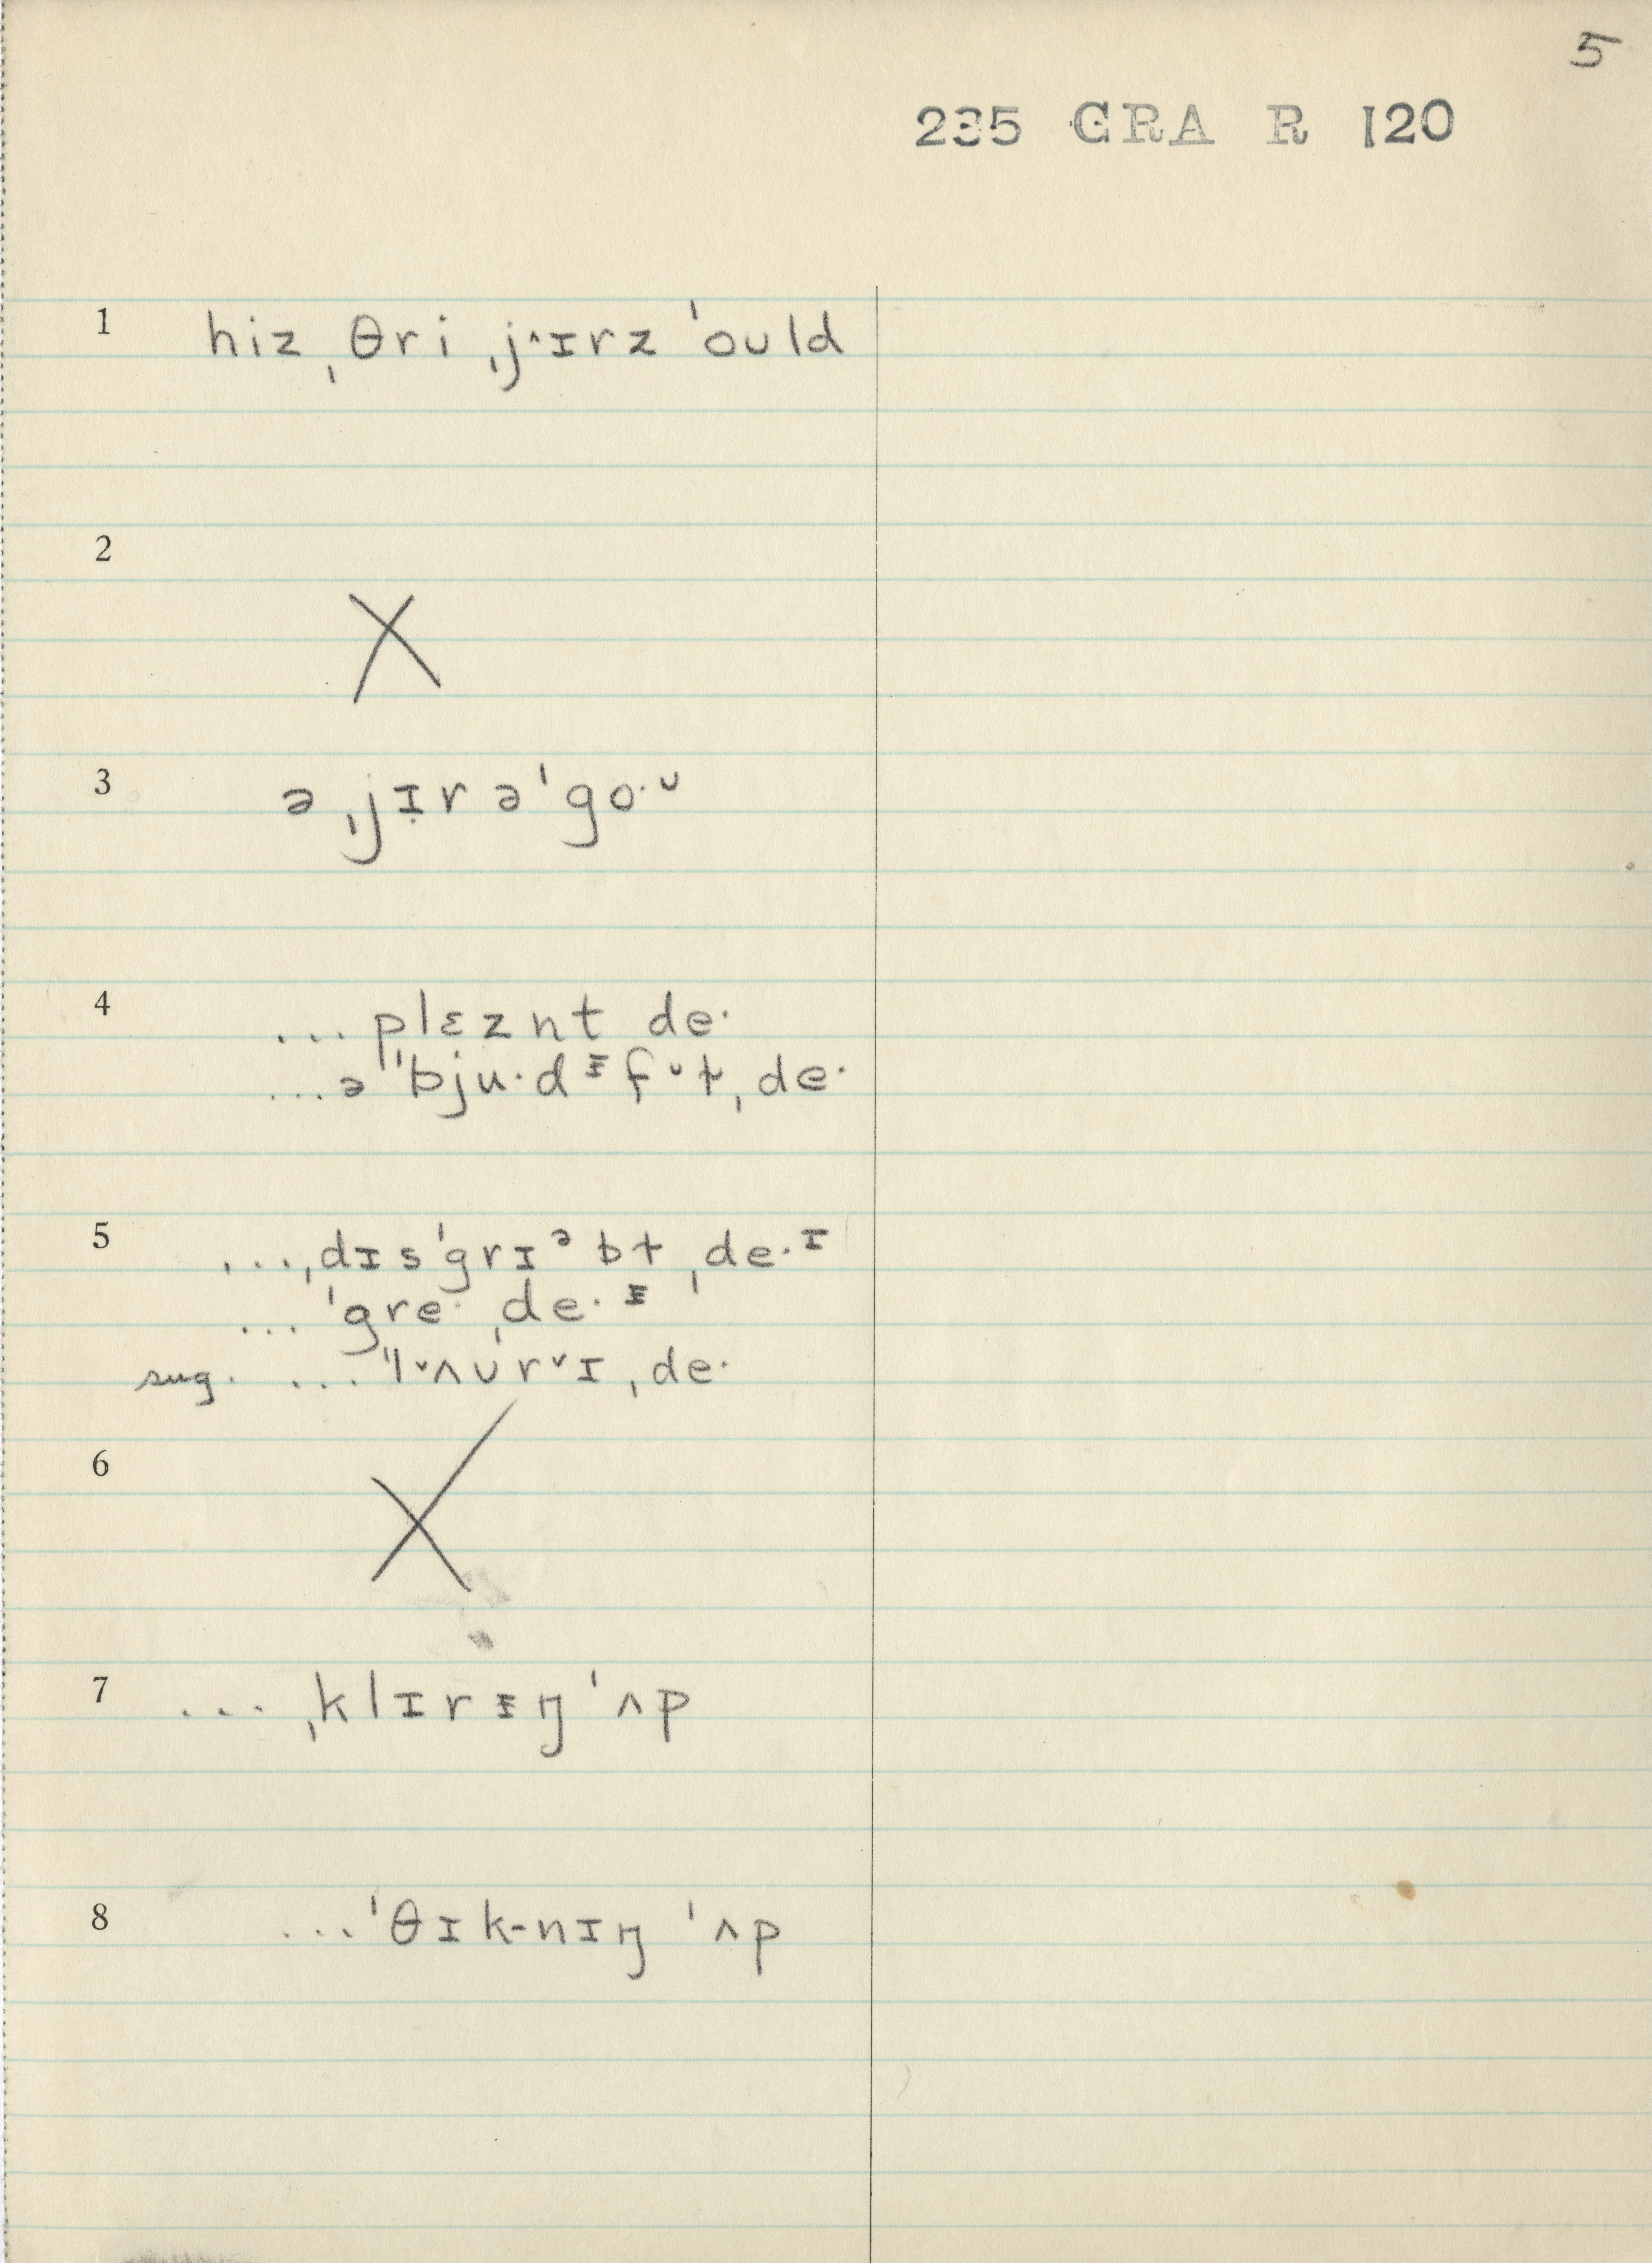 5
235 GRA R 120
1 hiz ˌθri ˌj^ɪrz ˈould
2 X
3 ə ˌjɪ̣r əˈgo·ᵕ
4 ... plɛznt de·
...ə ˈˈbju·dᵻfᵘt ˌde·
5 ...ˌdɪsˈgrɪᵊbt ˌde·ᶦ
... ˈgre· ˌde·ᵻ
sug. ... ˈˈlˇʌʊrˇɪ ˌde·
6 X
7 ... ˌklɪrᵻŋ ˈʌp
8 ...ˈθɪk-nɪŋ ˈʌp